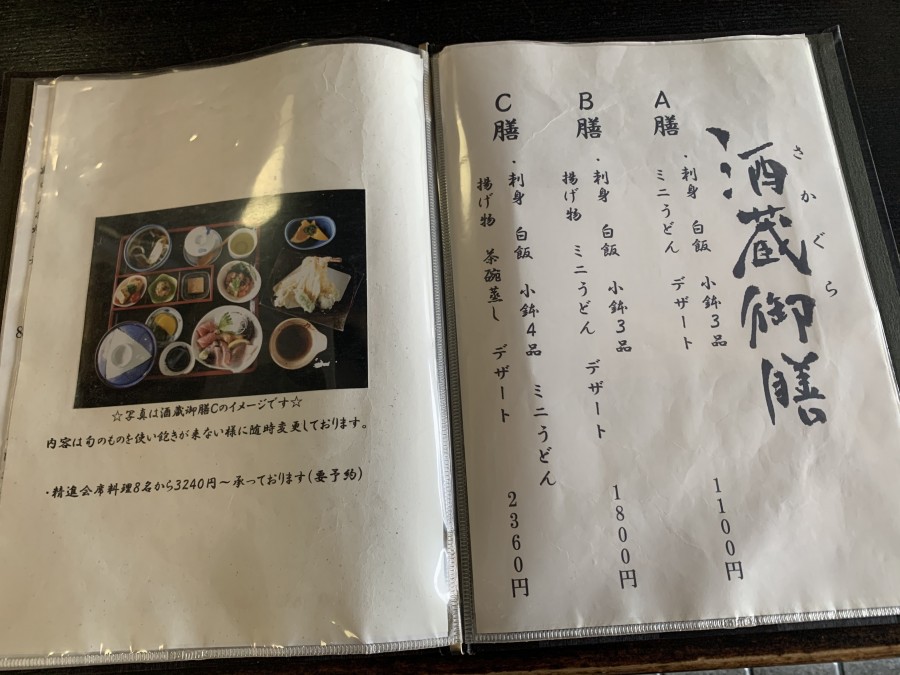 酒蔵御膳
さかぐら
A膳
・刺身 白飯 小鉢3品
ミニうどん デザート
1100円
B膳
・刺身 白飯 小鉢3品
揚げ物 ミニうどん デザート
1800円
C膳
・刺身 白飯 小鉢4品 ミニうどん
揚げ物 茶碗蒸し デザート
2360円
☆写真は酒蔵御膳Cのイメージです☆
内容は旬のものを使い飽きが来ない様に随時変更しております。
・精進会席料理8名から3240円〜承っております(要予約)
8